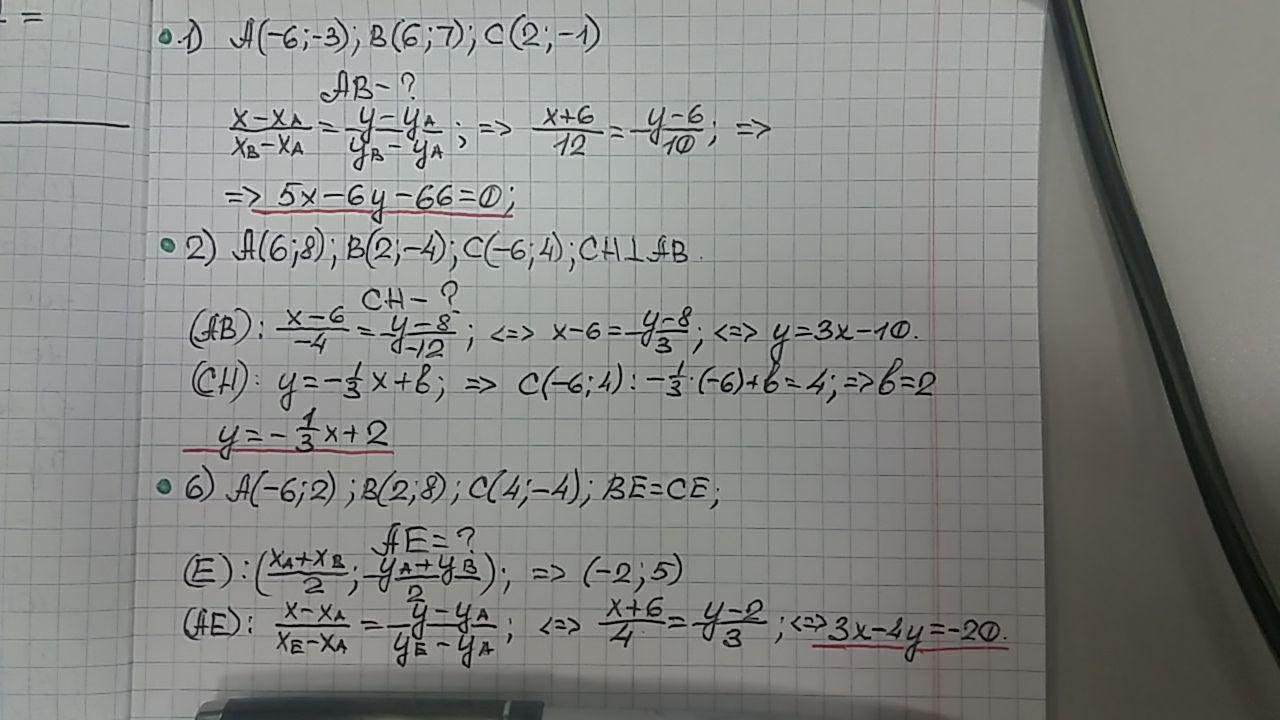 =
1) A(-6;-3); B(6;7); C(2;-1)
AB-?
(x-x_A)/(x_B-x_A) = (y-y_A)/(y_B-y_A); => (x+6)/12 = (y-6)/10; =>
=> 5x-6y-66=0;
2) A(6;8); B(2;-4); C(-6;4); CH⊥AB.
CH-?
(AB): (x-6)/(-4) = (y-8)/(-12); <=> x-6 = (y-8)/3; <=> y=3x-10.
(CH): y=-1/3 x+b; => C(-6;4): -1/3·(-6)+b=4; => b=2
y=-1/3 x+2
6) A(-6;2); B(2;8); C(4;-4); BE=CE;
AE=?
(E): ((x_A+x_B)/2; (y_A+y_B)/2); => (-2;5)
(AE): (x-x_A)/(x_E-x_A) = (y-y_A)/(y_E-y_A); <=> (x+6)/4 = (y-2)/3; <=> 3x-4y=-20.